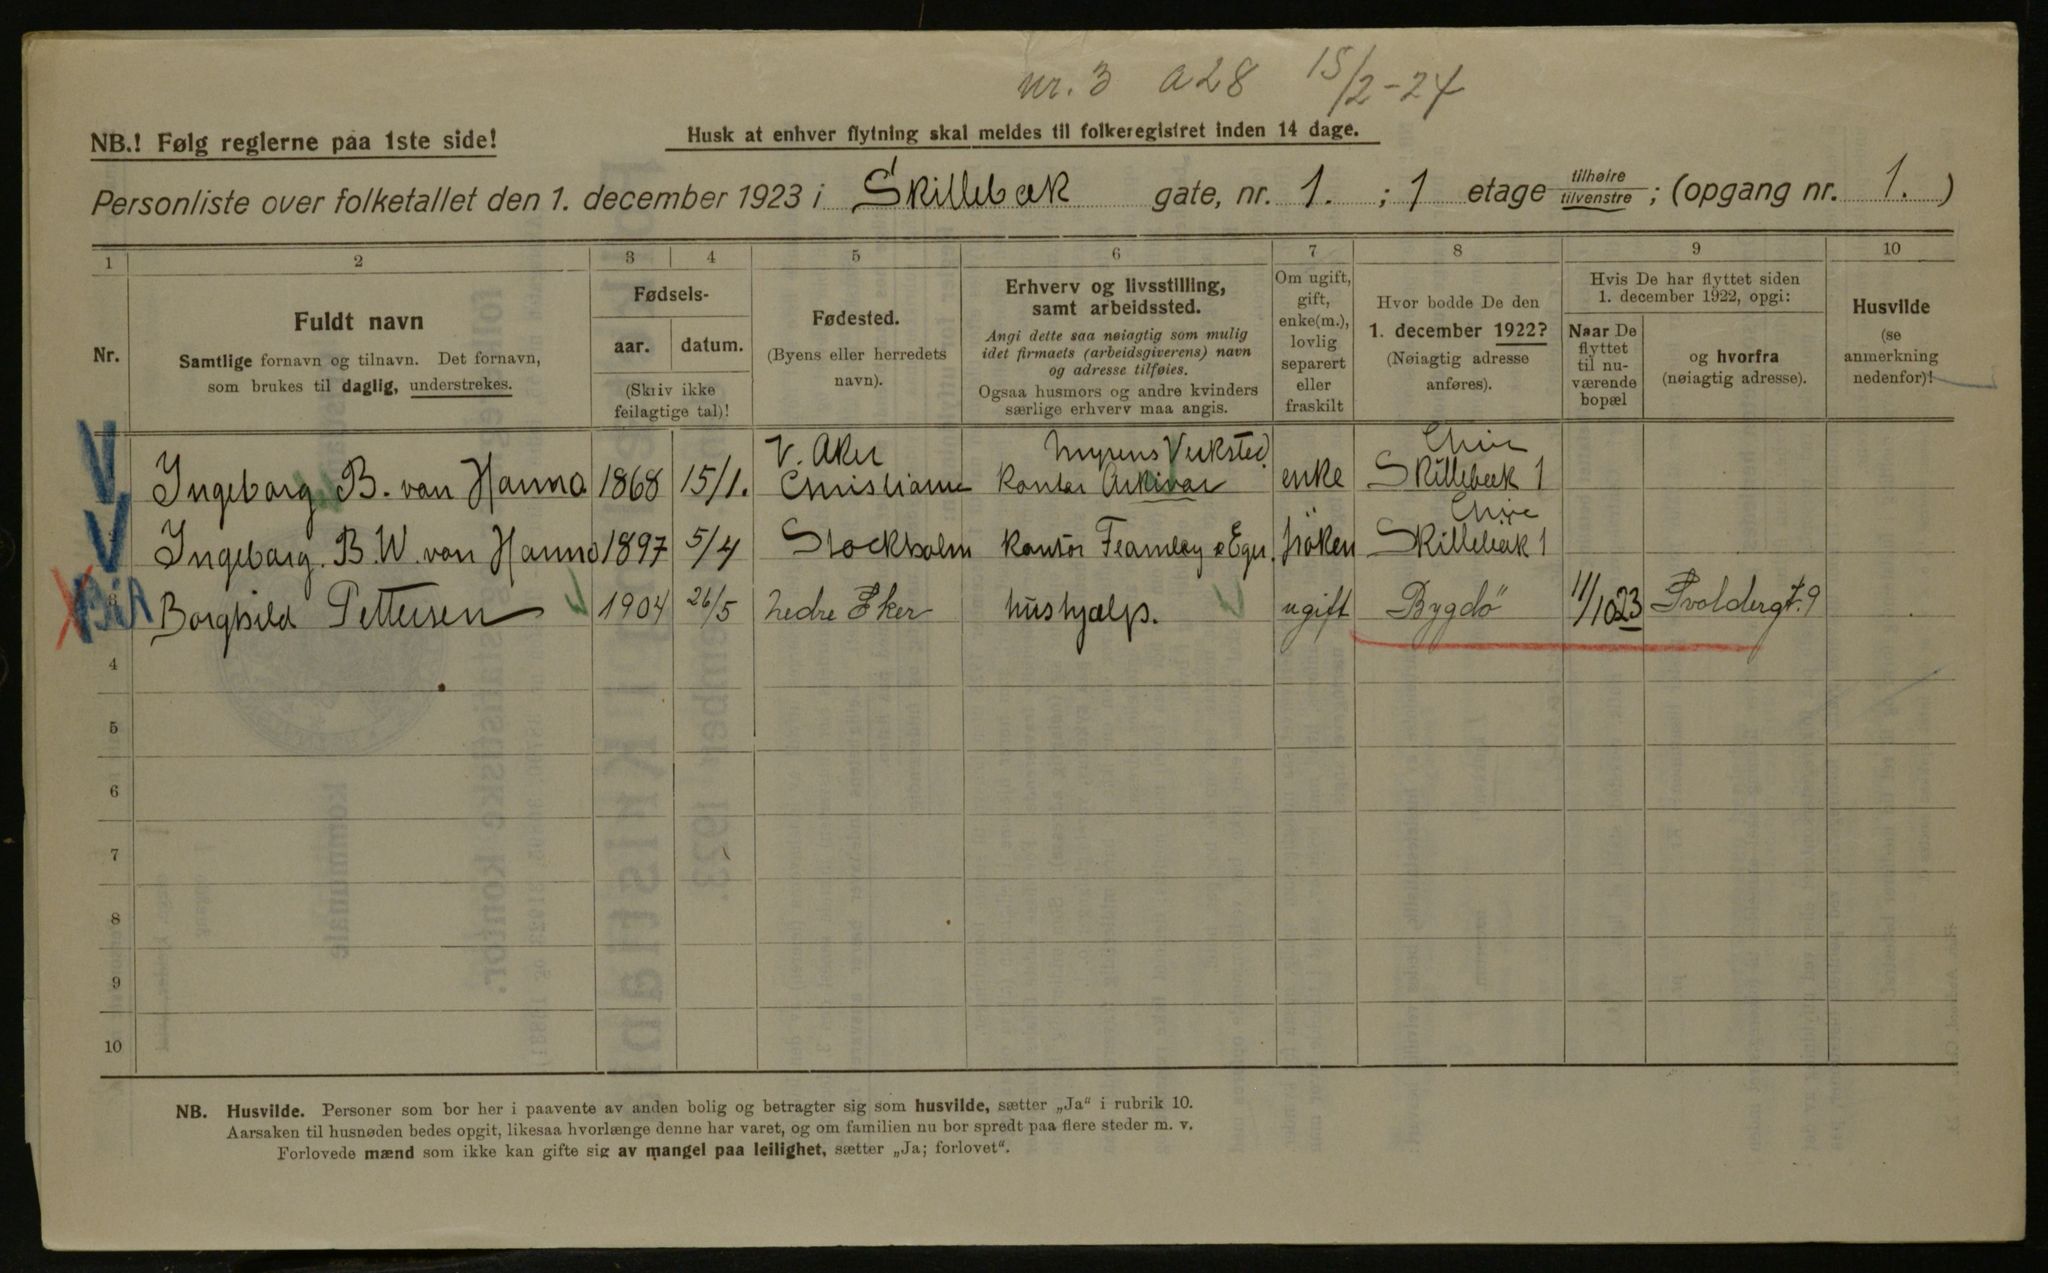 nr. 3 a 28 15/2-24
NB.! Følg reglerne paa 1ste side!
Husk at enhver flytning skal meldes til folkeregistret inden 14 dage.
Personliste over folketallet den 1. december 1923 i Skillebæk gate, nr. 1. ; 1 etage tilhøire tilvenstre ; (opgang nr. 1. )
1 2 3 4 5 6 7 8 9 10
Nr.
Fuldt navn
Samtlige fornavn og tilnavn. Det fornavn,
som brukes til daglig, understrekes.
Fødsels-
aar. datum.
(Skriv ikke
feilagtige tal)!
Fødested.
(Byens eller herredets
navn).
Erhverv og livsstilling,
samt arbeidssted.
Angi dette saa nøiagtig som mulig
idet firmaets (arbeidsgiverens) navn
og adresse tilføies.
Ogsaa husmors og andre kvinders
særlige erhverv maa angis.
Om ugift,
gift,
enke(m.),
lovlig
separert
eller
fraskilt
Hvor bodde De den
1. december 1922?
(Nøiagtig adresse
anføres).
Hvis De har flyttet siden
1. december 1922, opgi:
Naar De
flyttet
til nu-
værende
bopæl
og hvorfra
(nøiagtig adresse).
Husvilde
(se
anmerkning
nedenfor)!
V. Aker Myrens Verksted
Ingeborg B. von Hanno 1868 15/1. Christiania kontor Arkivar enke Skillebæk 1
Ingeborg. B. W. von Hanno 1897 5/4 Stockholm kontor Fearnley & Eger. fröken Skillebæk 1
Borghild Pettersen 1904 26/5 nedre Eker hushjælp. ugift Bygdö 11/10 23 Svoldergt. 9
4
5
6
7
8
9
10
NB. Husvilde. Personer som bor her i paavente av anden bolig og betragter sig som husvilde, sætter „Ja“ i rubrik 10.
Aarsaken til husnøden bedes opgit, likesaa hvorlænge denne har varet, og om familien nu bor spredt paa flere steder m. v.
Forlovede mænd som ikke kan gifte sig av mangel paa leilighet, sætter „Ja; forlovet“.